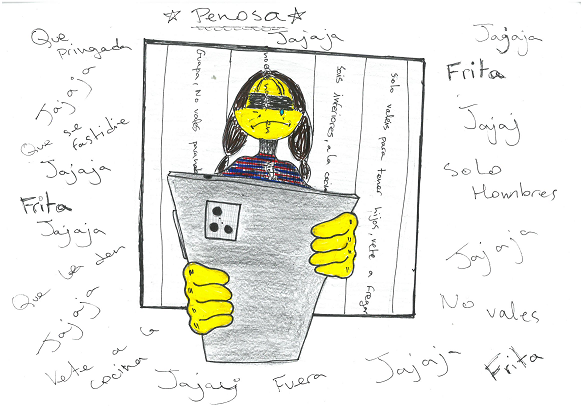 ☆ Penosa ☆
Que
pringada
Jajaja
Que se
fastidie
Jajaja
Frita
Jajaja
Que le den
Jajaja
Vete a la
cocina
Jajaja
Jajaja
Frita
Jajaj
Solo
Hombres
Jajaja
No vales
Frita
Jajaja
Fuera
Jajaj
Guapa, No vales para
sois inferiores, a la
solo valeis para tener hijos, vete a fregar